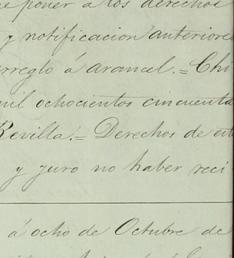 poner a los derechos
y notificacion anteriores
arreglo á arancel.= Chi
mil ochocientos cincuenta
Revilla.= Derechos de
y juro no haber reci
á ocho de Octubre de